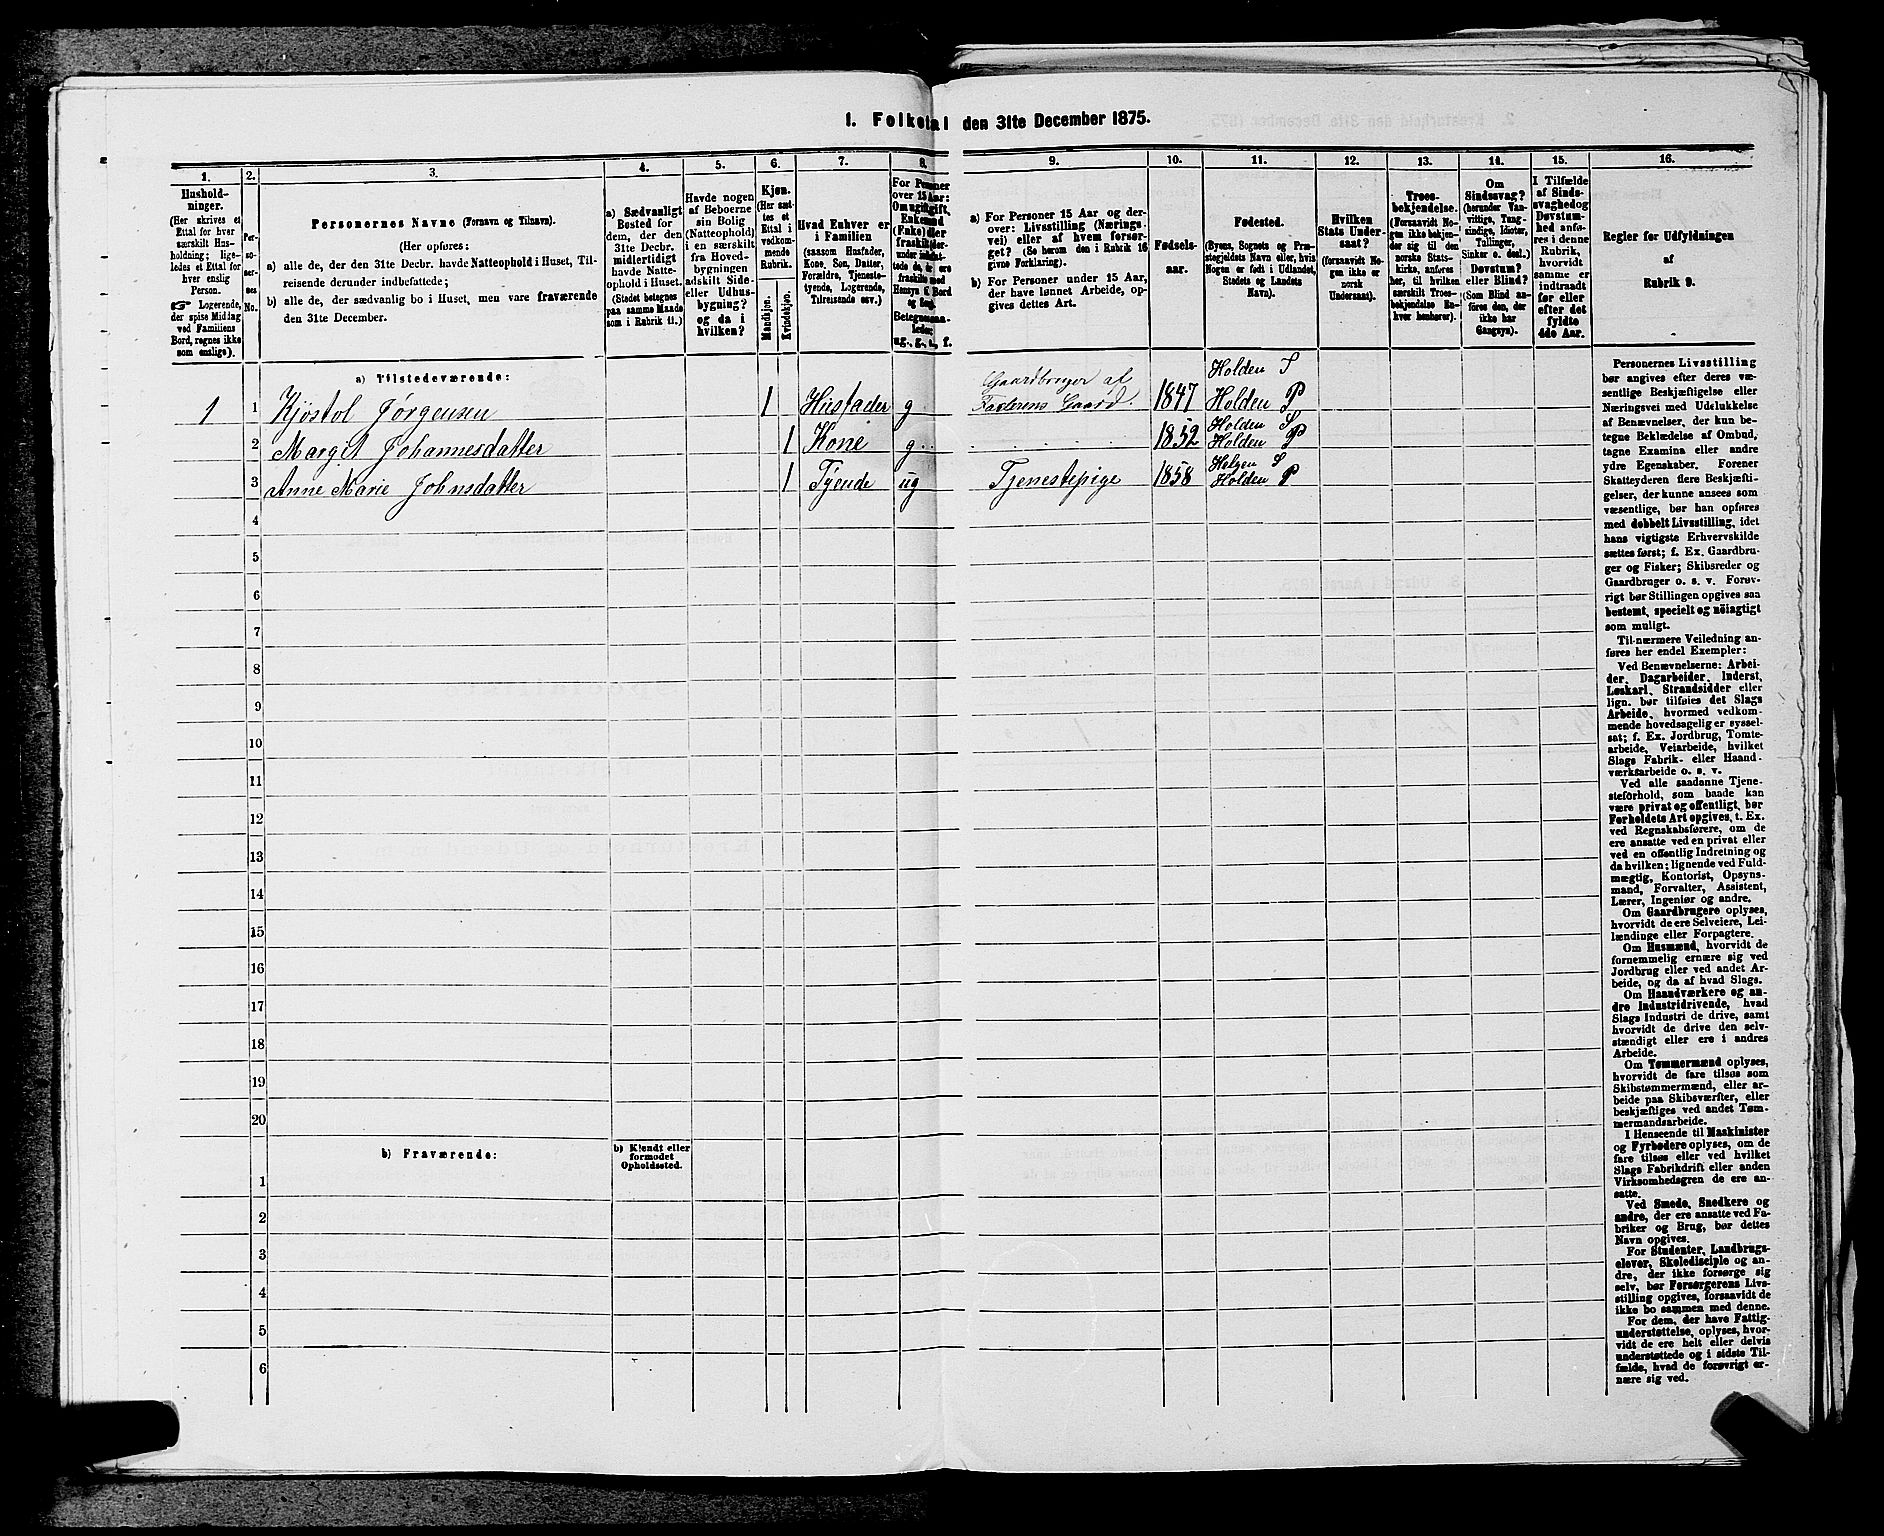 1. Folketal den 31te December 1875.
1. 2. 3. 4. 5. 6. 7. 8. 9. 10. 11. 12. 13. 14. 15. 16.
Hushold-
ninger.
(Her skrives et
Ettal for hver
særskilt Hus-
holdning; lige-
ledes et Ettal for
hver enslig
Person.
☞ Logerende,
der spise Middag
ved Familiens
Bord, regnes ikke
som enslige).
Per-
so-
ner-
nes
No.
Personernes Navne (Fornavn og Tilnavn).
(Her opføres:
a) alle de, der den 31te Decbr. havde Natteophold i Huset, Til-
reisende derunder indbefattede;
b) alle de, der sædvanlig bo i Huset, men vare fraværende
den 31te December.
a) Sædvanligt
Bosted for
dem, der den
31te Decbr.
midlertidigt
havde Natte-
ophold i Huset.
(Stedet betegnes
paa samme Maade
som i Rubrik 11.)
Havde nogen
af Beboerne
sin Bolig
(Natteophold)
i en særskilt
fra Hoved-
bygningen
adskilt Side-
eller Udhus-
bygning?
og da i
hvilken?
Kjøn.
(Her sæt-
tes et
Ettal i
vedkom-
mende
Rubrik.
Mandkjøn.
Kvindekjøn.
Hvad Enhver er
i Familien
(saasom Husfader,
Kone, Søn, Datter,
Forældre, Tjeneste-
tyende, Logerende,
Tilreisende osv.)
For Personer
over 15 Aar:
Om ugift, gift,
Enkemand
(Enke) eller
fraskilt
Betegnes saa-
ledes:
ug., g., e., f.
a) For Personer 15 Aar og der-
over: Livsstilling (Nærings-
vei) eller af hvem forsør-
get? (Se herom den i Rubrik 16
givne Forklaring).
b) For Personer under 15 Aar,
der have lønnet Arbeide, op-
gives dettes Art.
Fødsels-
aar.
Fødested.
(Byens, Sognets og Præ-
stegjeldets Navn eller, hvis
Nogen er født i Udlandet,
Stedets og Landets
Navn).
Hvilken
Stats Under-
saat?
(forsaavidt No-
gen ikke er
norsk
Undersaat).
Troes-
bekjendelse.
(Forsaavidt No-
gen ikke bekjen-
der sig til den
norske Stats-
kirke, anføres
her, til hvilken
særskilt Troes-
bekjendelse En-
hver henhører).
Om
Sindssvag?
(herunder Van-
vittige, Tung-
sindige, Idioter,
Tullinger,
Sinker o. desl.)
Døvstum?
eller Blind?
(Som Blind an-
føres den, der
ikke har
Gangsyn).
I Tilfælde
af Sinds-
svaghed og
Døvstum-
hed anfø-
res i denne
Rubrik,
hvorvidt
samme er
indtraadt
før eller
efter det
fyldte
4de Aar.
Regler for Udfyldningen
af
Rubrik 9.
a) Tilstedeværende:
1 1 Kjøstol Jørgensen 1 Husfader g Gaardbruger af Faderens Gaard. 1847 Holden S Holden P
2 Margit Johannesdatter 1 Kone g . . . . . 1852 Holden S Holden P
3 Anne Marie Johnsdatter 1 Tyende ug Tjenestepige 1858 Helgen S Holden P
4
5
6
7
8
9
10
11
12
13
14
15
16
17
18
19
20
b) Fraværende:
b) Kjendt eller
formodet
Opholdssted.
1
2
3
4
5
6
Personernes Livsstilling
bør angives efter deres væ-
sentlige Beskjæftigelse eller
Næringsvei med Udelukkelse
af Benævnelser, der kun be-
tegne Beklædelse af Ombud,
tagne Examina eller andre
ydre Egenskaber. Forener
Skatteyderen flere Beskjæfti-
gelser, der kunne ansees som
væsentlige, bør han opføres
med dobbelt Livsstilling, idet
hans vigtigste Erhvervskilde
sættes først; f. Ex. Gaardbru-
ger og Fisker; Skibsreder og
Gaardbruger o. s. v. Forøv-
rigt bør Stillingen opgives saa
bestemt, specielt og nøiagtigt
som muligt.
Til nærmere Veiledning an-
føres her endel Exempler:
Ved Benævnelserne: Arbei-
der, Dagarbeider, Inderst,
Løskarl, Strandsidder eller
lign. bør tilføies det Slags
Arbeide, hvormed vedkom-
mende hovedsagelig er syssel-
sat; f. Ex. Jordbrug, Tomte-
arbeide, Veiarbeide, hvilket
Slags Fabrik- eller Haand-
værksarbeide o. s. v.
Ved alle saadanne Tjene-
steforhold, som baade kan
være privat og offentligt, bør
Forholdets Art opgives, t. Ex.
ved Regnskabsførere, om de
ere ansatte ved en privat eller
ved en offentlig Indretning og
da hvilken; lignende ved Fuld-
mægtig, Kontorist, Opsyns-
mand, Forvalter, Assistent,
Lærer, Ingeniør og andre.
Om Gaardbrugere oplyses,
hvorvidt de ere Selveiere, Lei-
lændinge eller Forpagtere.
Om Husmænd, hvorvidt de
fornemmelig ernære sig ved
Jordbrug eller ved andet Ar-
beide, og da af hvad Slags.
Om Haandværkere og an-
dre Industridrivende, hvad
Slags Industri de drive, samt
hvorvidt de drive den selv-
stændigt eller ere i andres
Arbeide.
Om Tømmermænd oplyses,
hvorvidt de fare tilsøs som
Skibstømmermænd, eller ar-
beide paa Skibsværfter, eller
beskjæftiges ved andet Tøm-
mermandsarbeide.
I Henseende til Maskinister
og Fyrbødere oplyses, om de
fare tilsøs eller ved hvilket
Slags Fabrikdrift eller anden
Virksomhedsgren de ere an-
satte.
Ved Smede, Snedkere og
andre, der ere ansatte ved Fa-
briker og Brug, bør dettes
Navn opgives.
For Studenter, Landbrugs-
elever, Skoledisciple og an-
dre, der ikke forsørge sig
selv, bør Forsørgerens Livs-
stilling opgives, forsaavidt de
ikke bo sammen med denne.
For dem, der have Fattig-
understøttelse, oplyses, hvor-
vidt de ere helt eller delvis
understøttede og i sidste Til-
fælde, hvad de forøvrigt er-
nære sig ved.